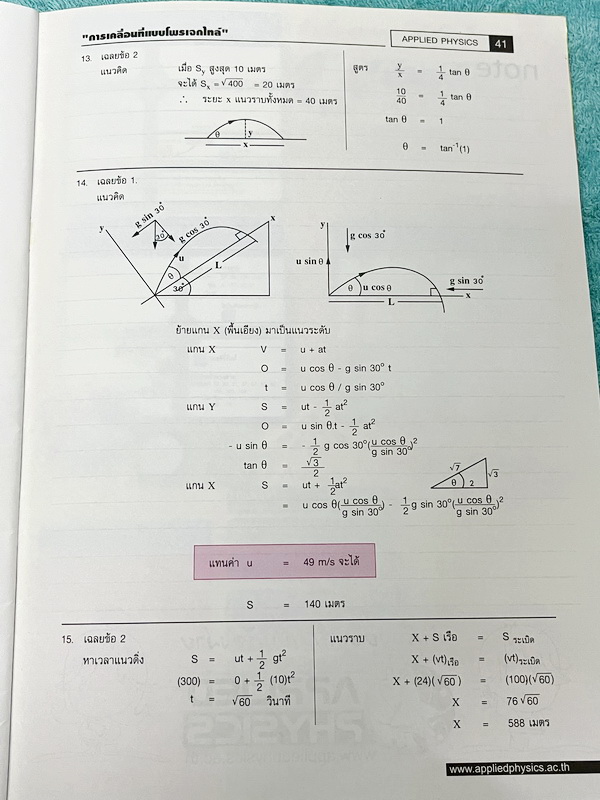 "การเคลื่อนที่แบบโพรเจกไทล์"
APPLIED PHYSICS 41
13. เฉลยข้อ 2
แนวคิด เมื่อ Sy สูงสุด 10 เมตร
จะได้ Sx = √400 = 20 เมตร
∴ ระยะ x แนวราบทั้งหมด = 40 เมตร
θ y
x
สูตร y/x = 1/4 tan θ
10/40 = 1/4 tan θ
tan θ = 1
θ = tan⁻¹(1)
14. เฉลยข้อ 1.
แนวคิด
y g sin 30° 30° g cos 30° x
u L
θ 30°
y g cos 30°
u sin θ
θ u cos θ g sin 30° x
L
ย้ายแกน X (พื้นเอียง) มาเป็นแนวระดับ
แกน X V = u + at
O = u cos θ - g sin 30° t
t = u cos θ / g sin 30°
แกน Y S = ut - 1/2 at²
O = u sin θ.t - 1/2 at²
- u sin θ = - 1/2 g cos 30°(u cos θ/g sin 30°)²
tan θ = √3/2
√7 √3 θ 2
แกน X S = ut + 1/2at²
= u cos θ(u cos θ/g sin 30°) - 1/2 g sin 30°(u cos θ/g sin 30°)²
แทนค่า u = 49 m/s จะได้
S = 140 เมตร
15. เฉลยข้อ 2
หาเวลาแนวดิ่ง S = ut + 1/2 gt²
(300) = 0 + 1/2 (10)t²
t = √60 วินาที
แนวราบ X + S เรือ = S ระเบิด
X + (vt)เรือ = (vt)ระเบิด
X + (24)(√60) = (100)(√60)
X = 76√60
X = 588 เมตร
www.appliedphysics.ac.th